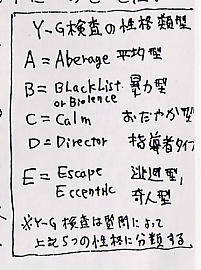 Y-G検査の性格類型
A = Aberage 平均型
B = BlackList 暴力型
or Biolence
C = Calm おだやか型
D = Director 指導者タイプ
E = Escape 逃避型,
Eccentric 奇人型
※Y-G検査は質問によって
上記5つの性格に分類する。